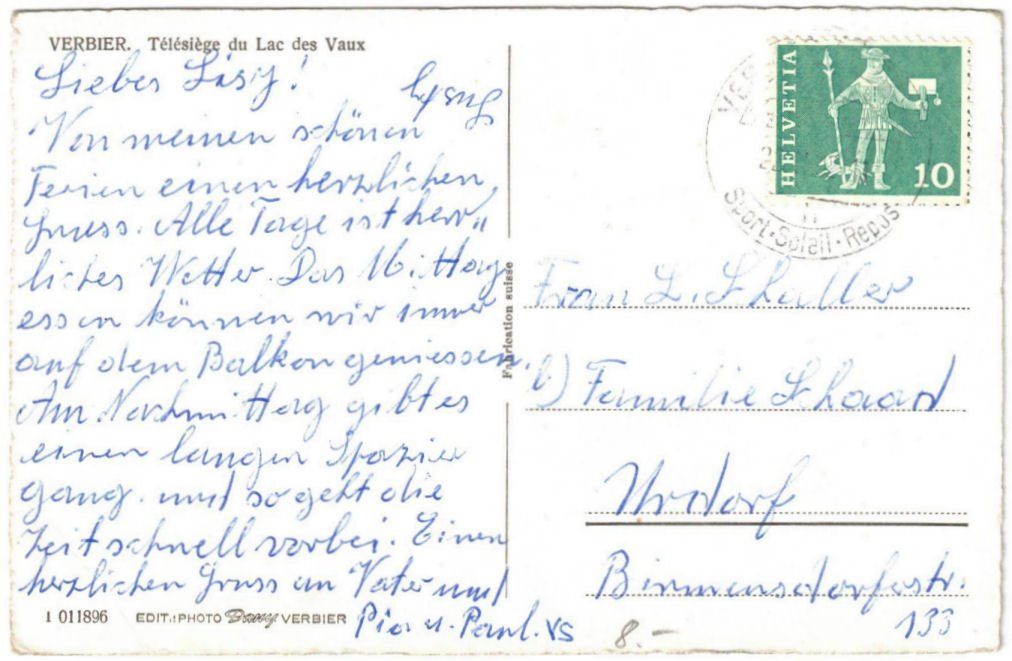 VERBIER. Télésiège du Lac des Vaux
Liebes Lisy!
Von meinen schönen
Ferien einen herzlichen
Gruss. Alle Tage ist herr„
liches Wetter. Das Mittag„
essen können wir immer
auf dem Balkon geniessen.
Am Nachmittag gibt es
einen langen Spazier
gang. und so geht die
Zeit schnell vorbei. Einen
herzlichen Gruss an Vater und
Pia u. Paul.
VS
1 011896 EDIT.: PHOTO Darry VERBIER
Fabrication suisse
HELVETIA
10
Sport·Soleil·Repos
Frau L. Schaller
b) Familie Schaad
Urdorf
Birmensdorferstr.
133
8.-